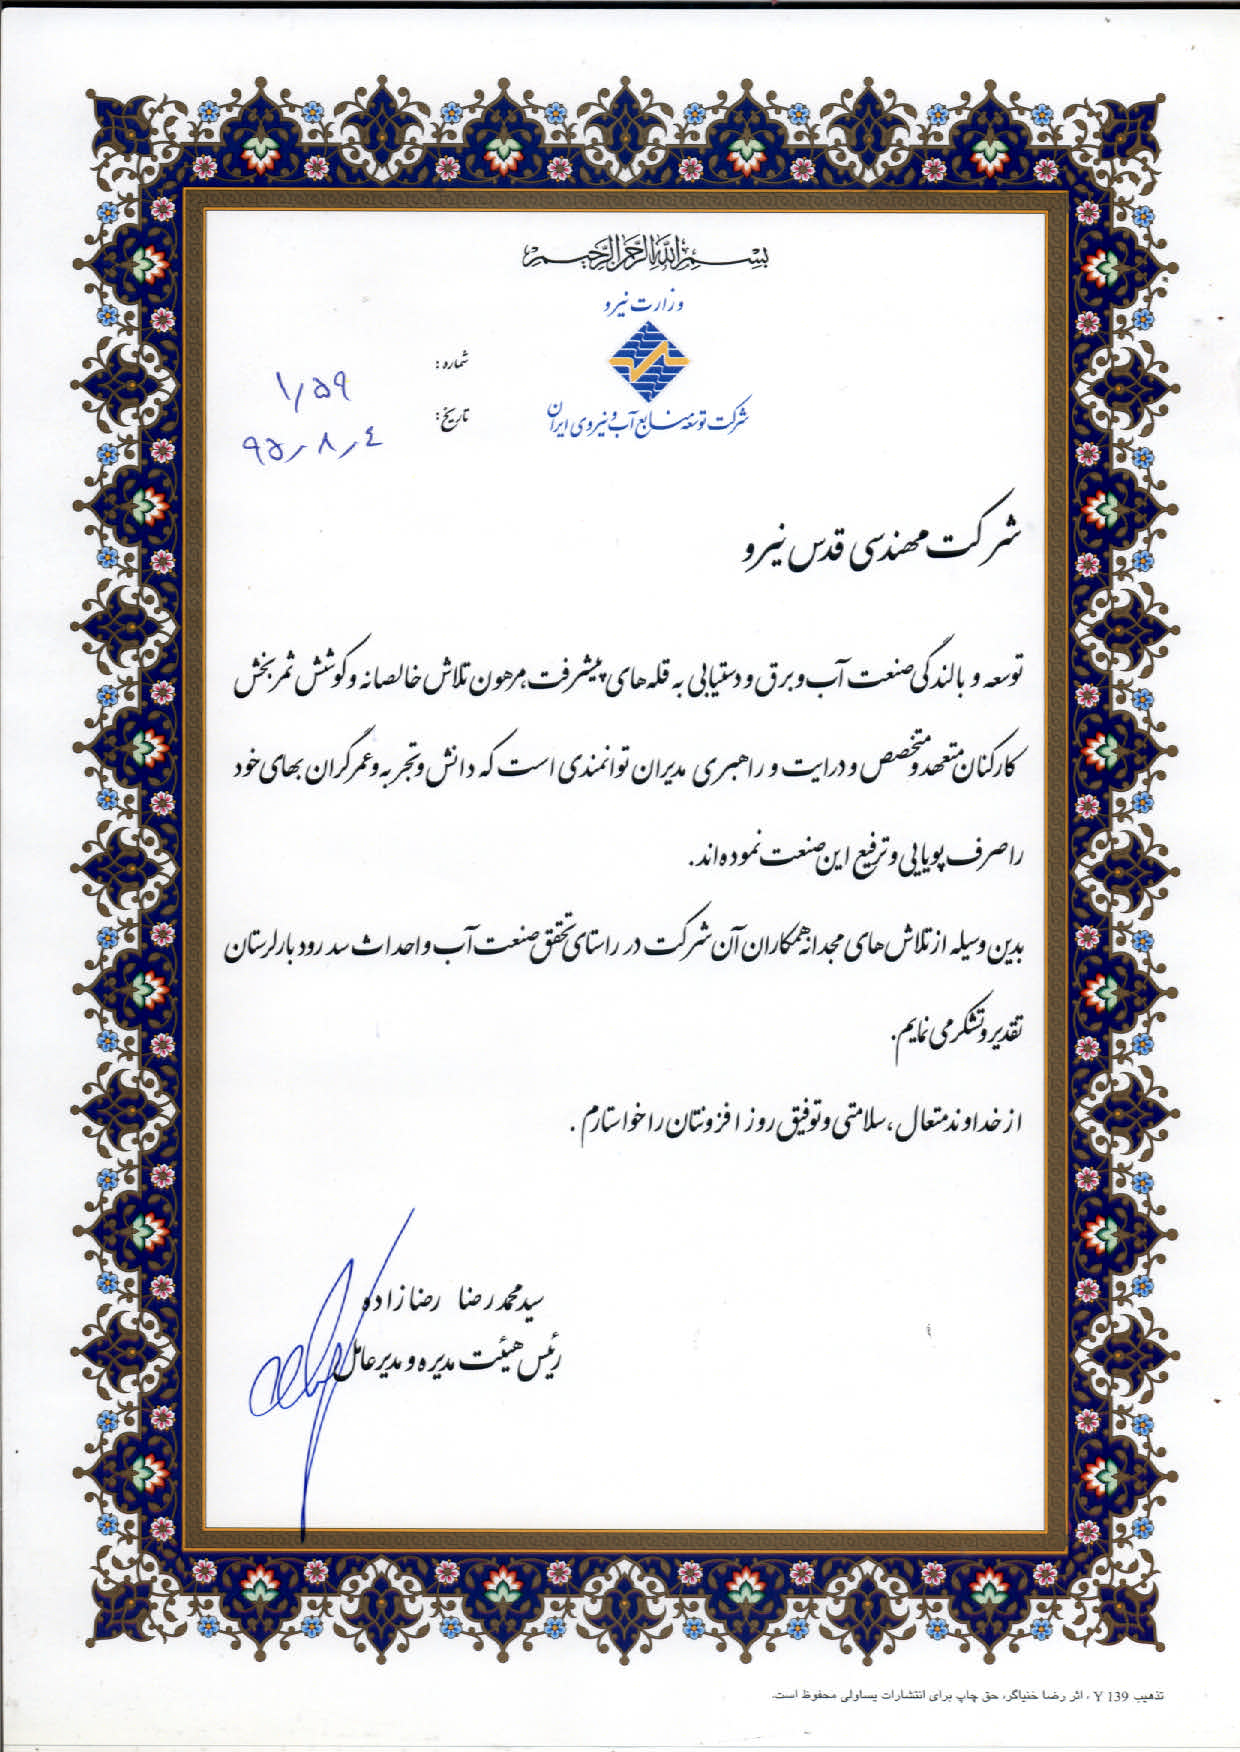 بسم الله الرحمن الرحیم
وزارت نیرو
شرکت توسعه منابع آب و نیروی ایران
شماره: ۱/۵۹
تاریخ: ۹۵/۸/۴
شرکت مهندسی قدس نیرو
توسعه و بالندگی صنعت آب و برق و دستیابی به قله های پیشرفت، مرهون تلاش خالصانه و کوشش ثمربخش
کارکنان متعهد و متخصص و درایت و راهبری مدیران توانمندی است که دانش و تجربه و عمر گران بهای خود
را صرف پویایی و ترفیع این صنعت نموده اند.
بدین وسیله از تلاش های مجدانه همکاران آن شرکت در راستای تحقق صنعت آب و احداث سد رودبار لرستان
تقدیر و تشکر می نمایم.
از خداوند متعال، سلامتی و توفیق روز افزونتان را خواستارم.
سید محمد رضا رضازاده
رئیس هیئت مدیره و مدیرعامل
تذهیب Y 139 ، اثر رضا خنیاگر، حق چاپ برای انتشارات یساولی محفوظ است.